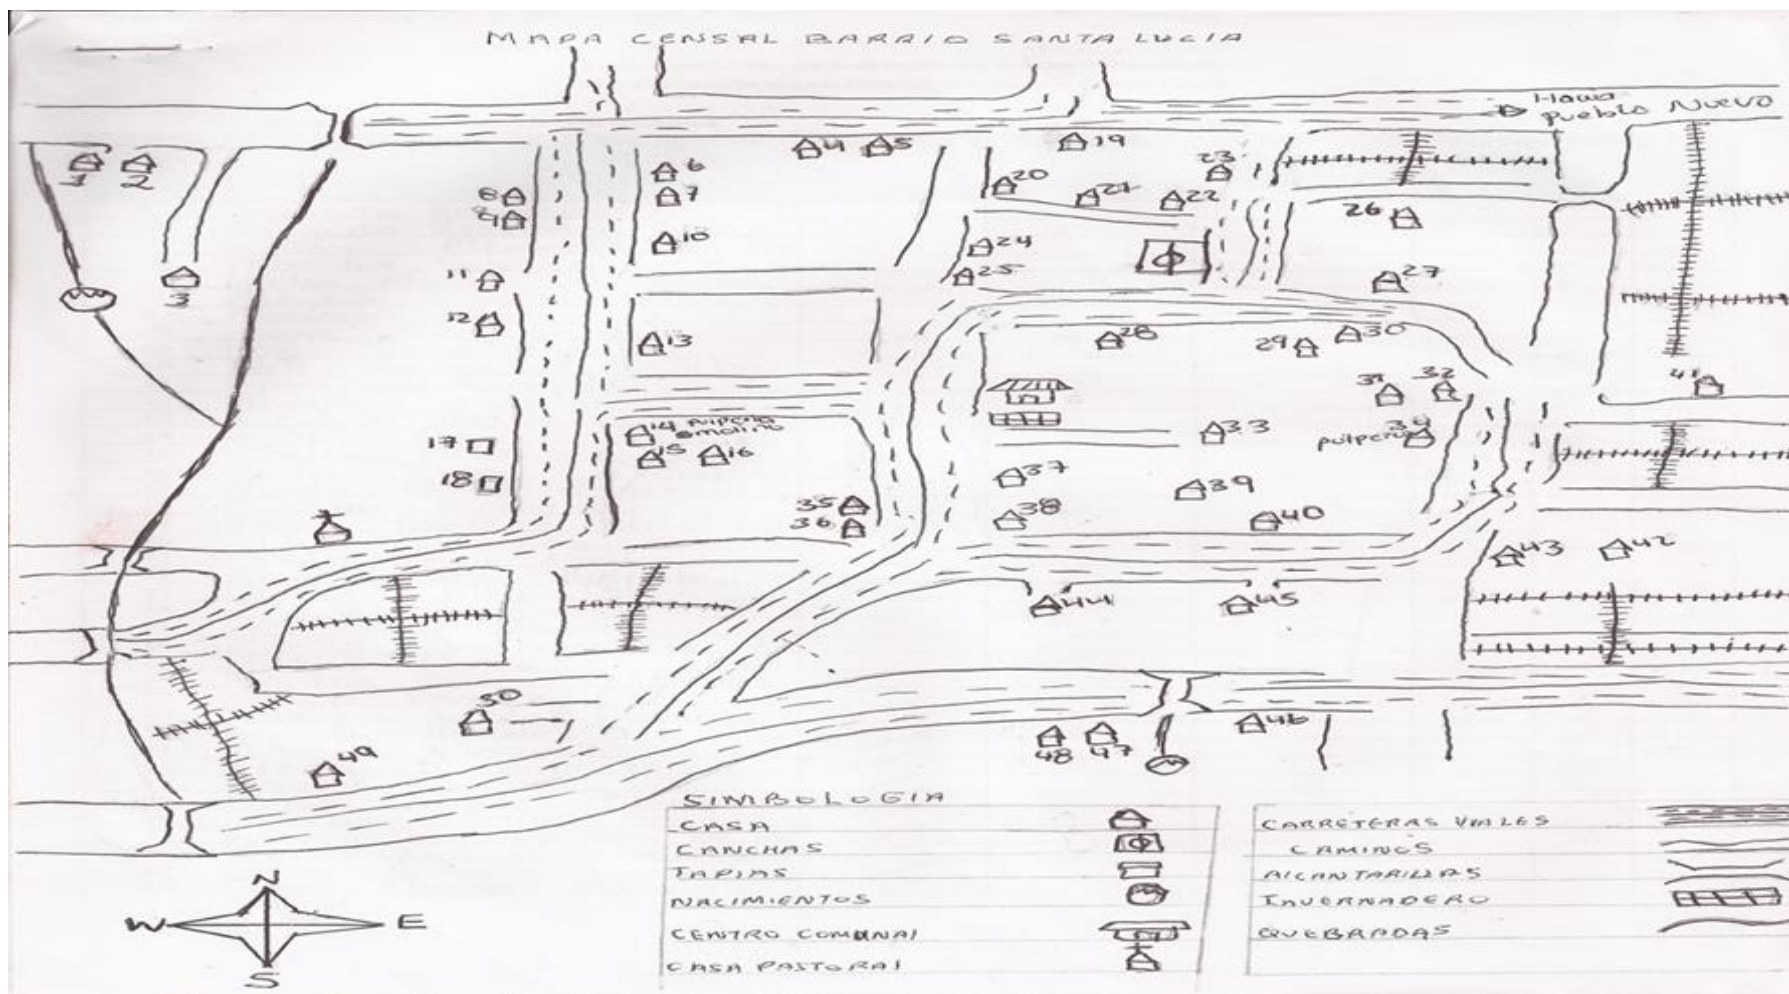 MAPA CENSAL BARRIO SANTA LUCIA
Hacia
Pueblo Nuevo
1
2
3
4
5
6
7
8
9
10
11
12
13
14 pulperia
molino
15
16
17
18
19
20
21
22
23
24
25
26
27
28
29
30
31
32
33
pulperia
34
35
36
37
38
39
40
41
43
42
44
45
46
48
47
49
50
N
W
E
S
SIMBOLOGIA
CASA
CANCHAS
TAPIAS
NACIMIENTOS
CENTRO COMUNAL
CASA PASTORAL
CARRETERAS VIALES
CAMINOS
ALCANTARILLAS
INVERNADERO
QUEBRADAS